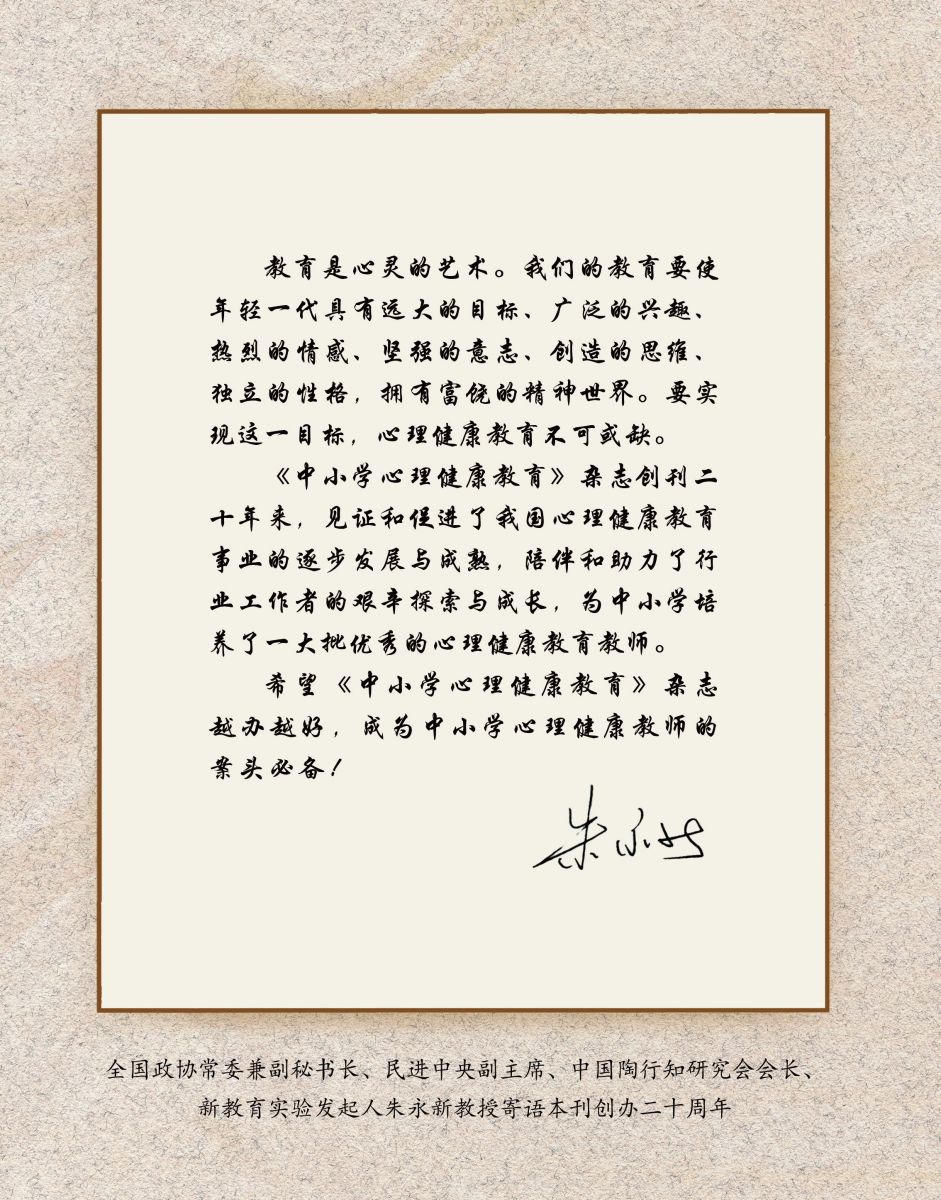 教育是心灵的艺术。我们的教育要使
年轻一代具有远大的目标、广泛的兴趣、
热烈的情感、坚强的意志、创造的思维、
独立的性格，拥有富饶的精神世界。要实
现这一目标，心理健康教育不可或缺。
《中小学心理健康教育》杂志创刊二
十年来，见证和促进了我国心理健康教育
事业的逐步发展与成熟，陪伴和助力了行
业工作者的艰辛探索与成长，为中小学培
养了一大批优秀的心理健康教育教师。
希望《中小学心理健康教育》杂志
越办越好，成为中小学心理健康教师的
案头必备！
朱永新
全国政协常委兼副秘书长、民进中央副主席、中国陶行知研究会会长、
新教育实验发起人朱永新教授寄语本刊创办二十周年